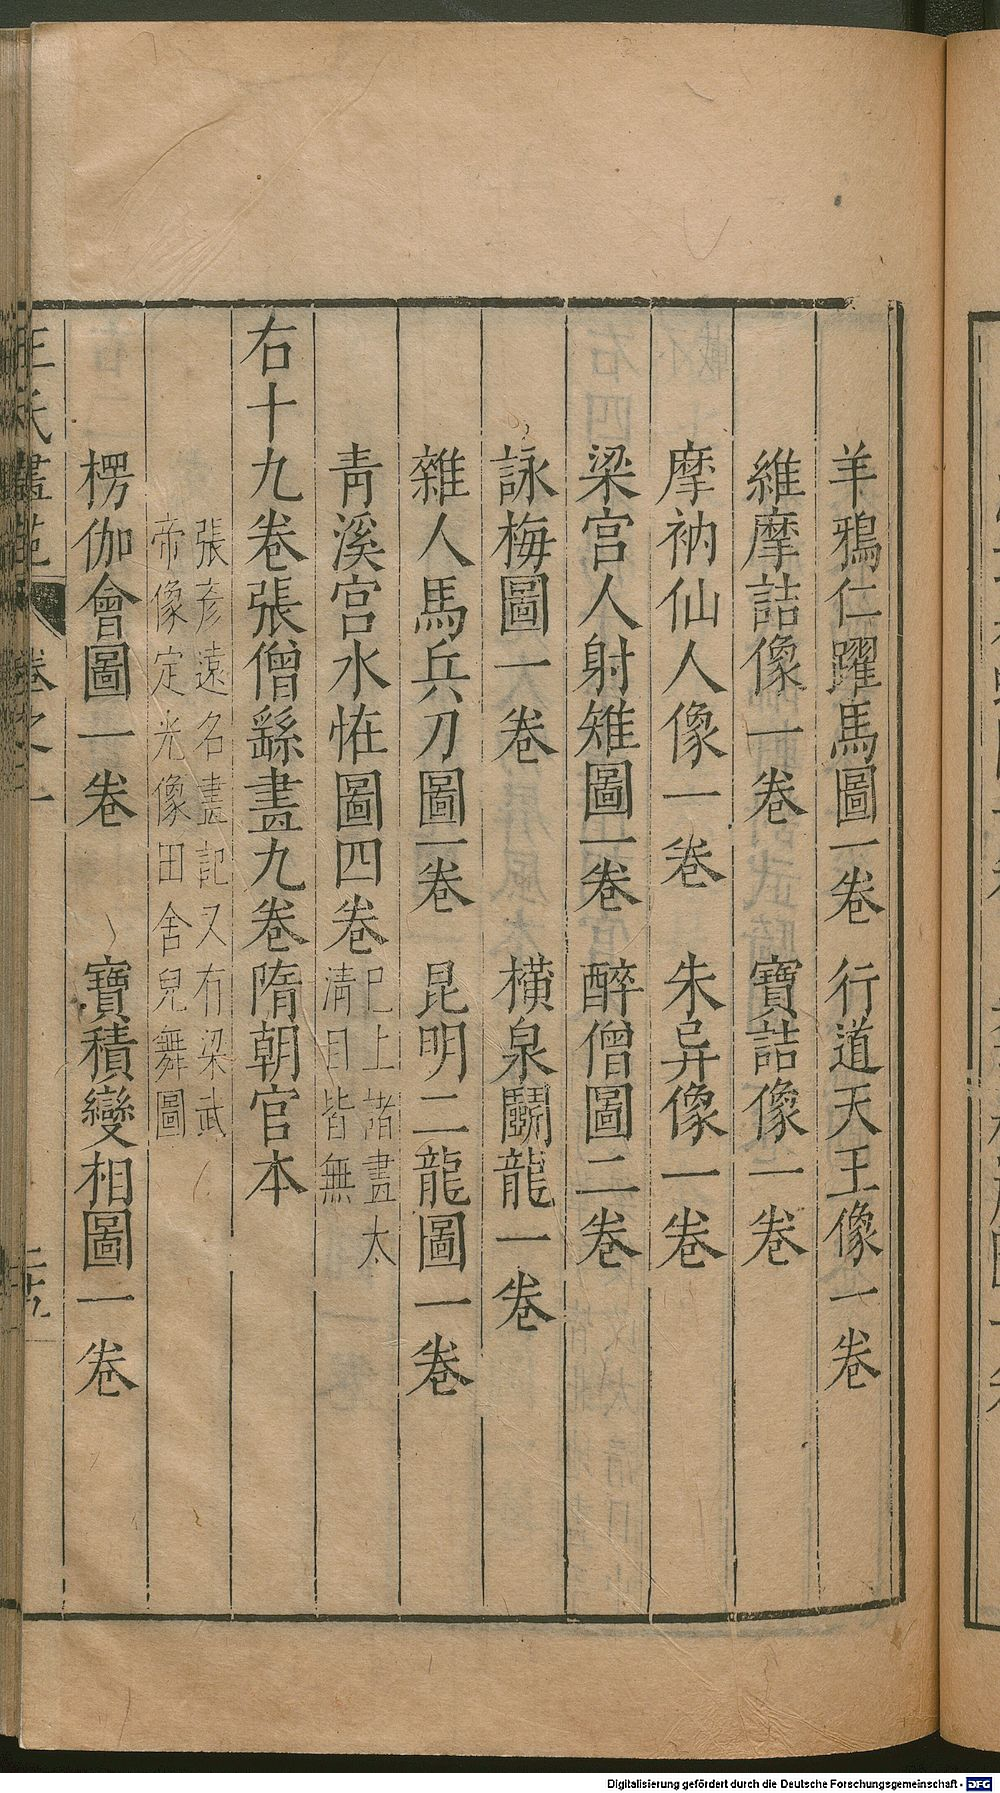 羊鴉仁躍馬圖一卷　行道天王像一卷
維摩詰像一卷　寶誌像一卷
摩衲仙人像一卷　朱异像一卷
梁宫人射雉圖一卷　醉僧圖二卷
詠梅圖一卷　橫泉鬭龍一卷
雜人馬兵刀圖一卷　昆明二龍圖一卷
青溪宫水恠圖四卷　已上諸畫太
清目皆無
右十九卷張僧繇畫九卷隋朝官本
張彦遠名畫記又有梁武
帝像定光像田舍兒舞圖
楞伽會圖一卷　寶積變相圖一卷
王氏畫苑　卷之一
Digitalisierung gefördert durch die Deutsche Forschungsgemeinschaft - DFG